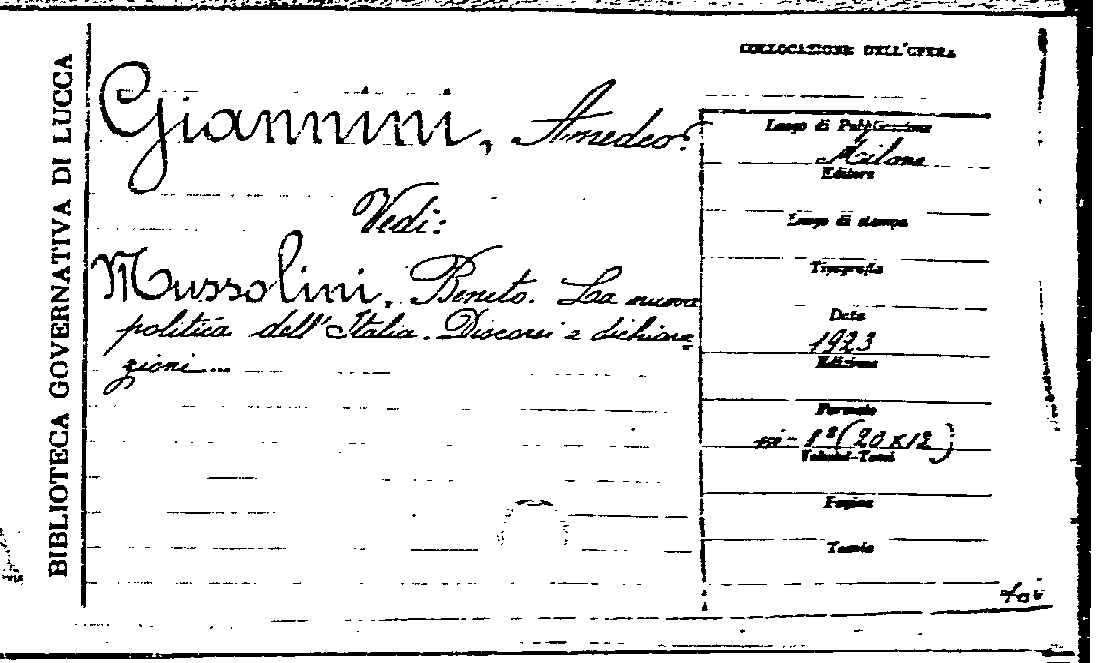 BIBLIOTECA GOVERNATIVA DI LUCCA
Giannini, Amedeo.
Vedi:
Mussolini, Benito. La nuova
politica dell'Italia. Discorsi e dichiara
zioni...
COLLOCAZIONE DELL'OPERA
Luogo di Pubblicazione
Milano
Editore
Luogo di stampa
Tipografia
Data
1923
Edizione
Formato
(20x12)
Volumi-Tomi
Pagine
Tavole